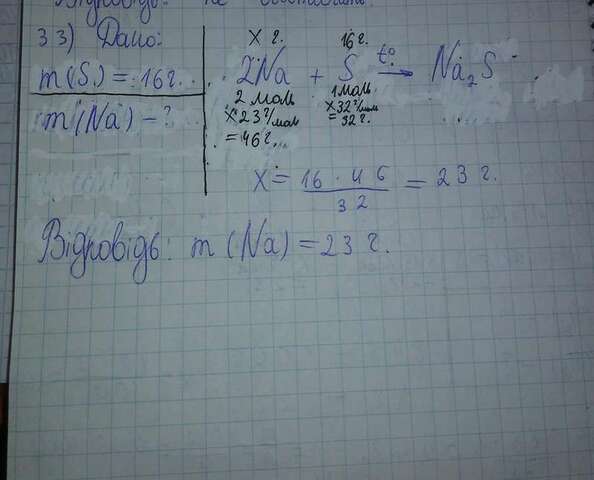 Відповідь: не
33) Дано:
m(S) = 16г.
m(Na) - ?
x г. 16г.
2Na + S t°→ Na₂S
2 моль 1моль
x 23г/моль x32г/моль
= 46г. = 32г.
x = 16 · 46 / 32 = 23 г.
Відповідь: m (Na) = 23 г.